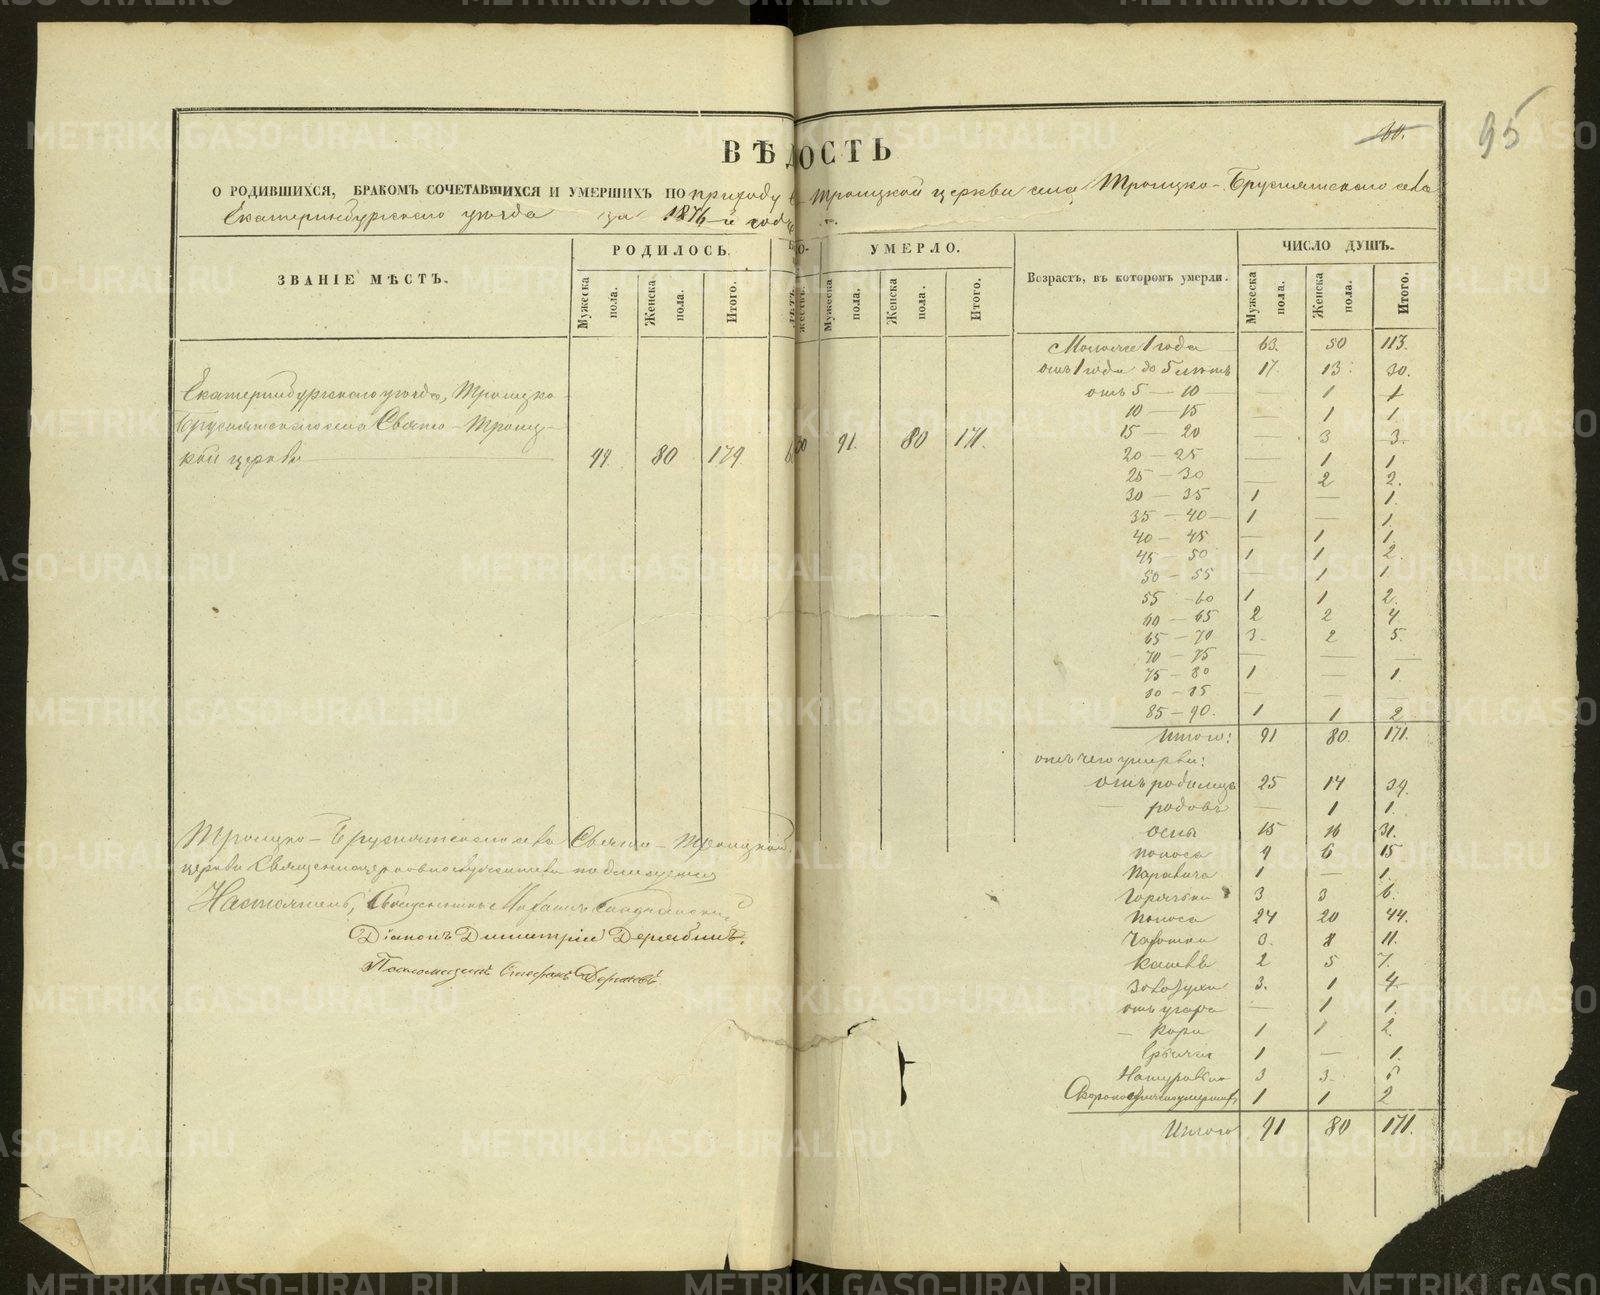 95
60.
ВѢДОСТЬ
О РОДИВШИХСЯ, БРАКОМЪ СОЧЕТАВШИХСЯ И УМЕРШИХЪ ПО приходу Троицкой церкви села Троицко-Бруснятскаго села
Екатеринбургскаго уѣзда за 1876-й годъ.
ЗВАНІЕ МѢСТЪ.
РОДИЛОСЬ.
Мужеска пола.
Женска пола.
Итого.
УМЕРЛО.
Мужеска пола.
Женска пола.
Итого.
Возрастъ, въ которомъ умерли.
ЧИСЛО ДУШЪ.
Мужеска пола.
Женска пола.
Итого.
Екатеринбургскаго уѣзда, Троицко-
Бруснятскаго села Свято-Троиц-
кой церкви 99. 80 179. 91. 80 171.
Моложе 1 года 63. 50 113.
отъ 1 года до 5 лѣтъ 17. 13. 30.
отъ 5 — 10 — — 1 1
10 — 15 — 1 1.
15 — 20 — 3 3.
20 — 25 — 1 1
25 — 30 — 2 2.
30 — 35 1 — 1.
35 — 40 — 1 — 1.
40 — 45 — 1 1.
45 — 50 1 1 2.
50 — 55 — 1 1
55 — 60 1 1 2.
60 — 65 2 2 4
65 — 70 3. 2 5.
70 — 75 — — —
75 — 80 1 — 1.
80 — 85 — — —
85 — 90. 1 1 2
Итого: 91 80. 171.
отъ чего умерли:
отъ родимца 25 14 39.
— родовъ — 1 1.
оспы 15 16 31.
поноса 9 6 15
1 — 1.
Горячки 3 3 6.
поноса 24 20 44.
Чахотки 3. 8 11.
кашля 2 5 7.
3. 1 4
отъ угара — 1 1.
— кори 1 1 2.
1 — 1.
3 3. 6
Скоропостижно умершихъ 1 1 2
Итого 91 80 171.
Троицко-Бруснятскаго села Свято-Троицкой
церкви Священноцерковнослужители подписуемся
Настоятель, Священникъ Михаилъ
Діаконъ Димитрій Дерябинъ.
Псаломщикъ Стефанъ
METRIKI.GASO-URAL.RU